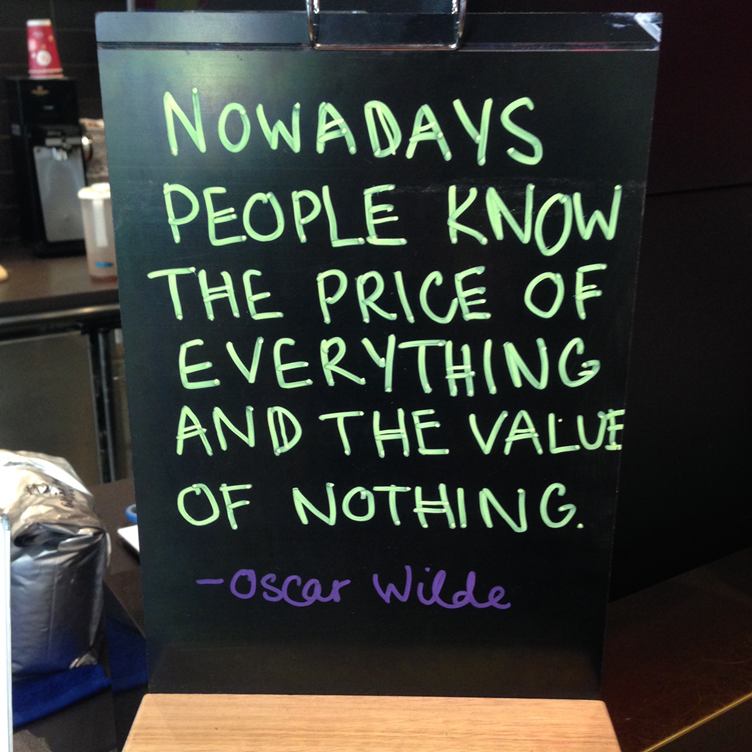 NOWADAYS
PEOPLE KNOW
THE PRICE OF
EVERYTHING
AND THE VALUE
OF NOTHING.
-Oscar Wilde